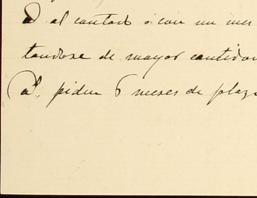 al contado ó con un me
tandose de mayor cantidad
piden 6 meses de plaz